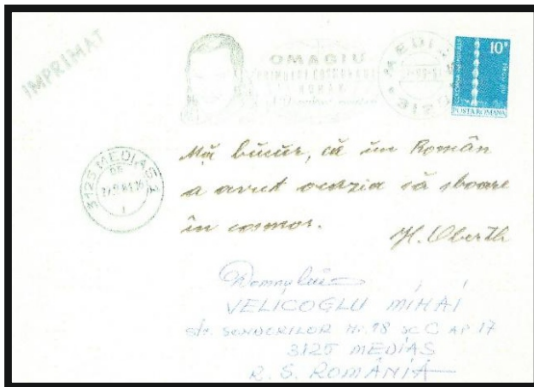 IMPRIMAT
OMAGIU
PRIMULUI COSMONAUT
ROMÂN
10
POSTA ROMANA
3125 MEDIAS 1
Mă bucur, că un Român
a avut ocazia să sboare
în cosmos.
H. Oberth
Domnului
VELICOGLU MIHAI
Str. SONDORILOR Nr. 18 sc C AP 17
3125 MEDIAS
R. S. ROMÂNIA